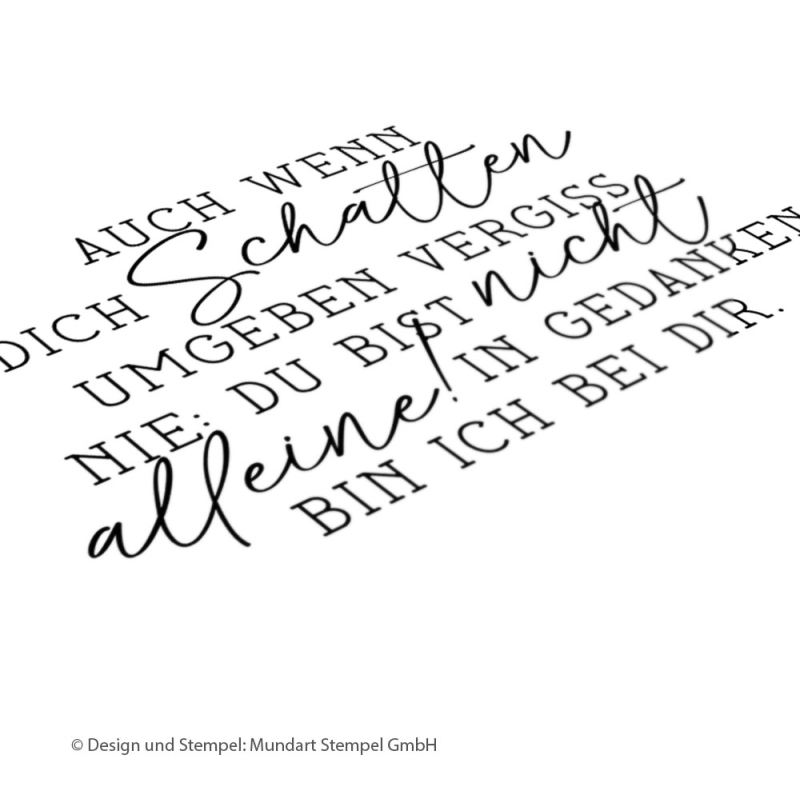 AUCH WENN
DICH Schatten
UMGEBEN VERGISS
NIE: DU BIST nicht
alleine! IN GEDANKEN
BIN ICH BEI DIR.
© Design und Stempel: Mundart Stempel GmbH